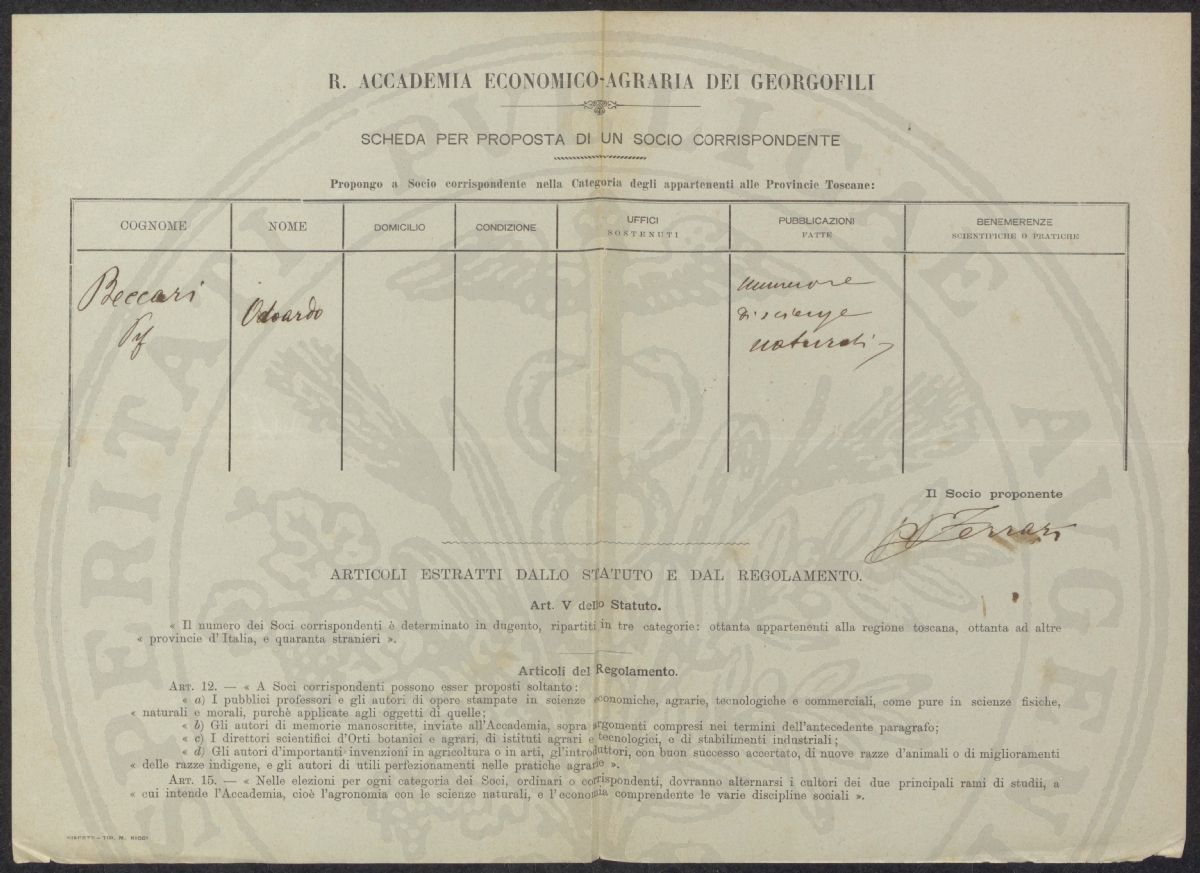 R. ACCADEMIA ECONOMICO-AGRARIA DEI GEORGOFILI
SCHEDA PER PROPOSTA DI UN SOCIO CORRISPONDENTE
Propongo a Socio corrispondente nella Categoria degli appartenenti alle Provincie Toscane:
COGNOME NOME DOMICILIO CONDIZIONE UFFICI SOSTENUTI PUBBLICAZIONI FATTE BENEMERENZE SCIENTIFICHE O PRATICHE
Beccari Odoardo numerose
di scienze
naturali
Il Socio proponente
Ferrari
ARTICOLI ESTRATTI DALLO STATUTO E DAL REGOLAMENTO.
Art. V dello Statuto.
« Il numero dei Soci corrispondenti è determinato in dugento, ripartiti in tre categorie: ottanta appartenenti alla regione toscana, ottanta ad altre
« provincie d'Italia, e quaranta stranieri ».
Articoli del Regolamento.
ART. 12. — « A Soci corrispondenti possono esser proposti soltanto:
« a) I pubblici professori e gli autori di opere stampate in scienze economiche, agrarie, tecnologiche e commerciali, come pure in scienze fisiche,
« naturali e morali, purchè applicate agli oggetti di quelle;
« b) Gli autori di memorie manoscritte, inviate all'Accademia, sopra argomenti compresi nei termini dell'antecedente paragrafo;
« c) I direttori scientifici d'Orti botanici e agrari, di istituti agrari e tecnologici, e di stabilimenti industriali;
« d) Gli autori d'importanti invenzioni in agricoltura o in arti, gl'introduttori, con buon successo accertato, di nuove razze d'animali o di miglioramenti
« delle razze indigene, e gli autori di utili perfezionamenti nelle pratiche agrarie ».
ART. 15. — « Nelle elezioni per ogni categoria dei Soci, ordinari o corrispondenti, dovranno alternarsi i cultori dei due principali rami di studii, a
« cui intende l'Accademia, cioè l'agronomia con le scienze naturali, e l'economia comprendente le varie discipline sociali ».
TIP. M. RICCI